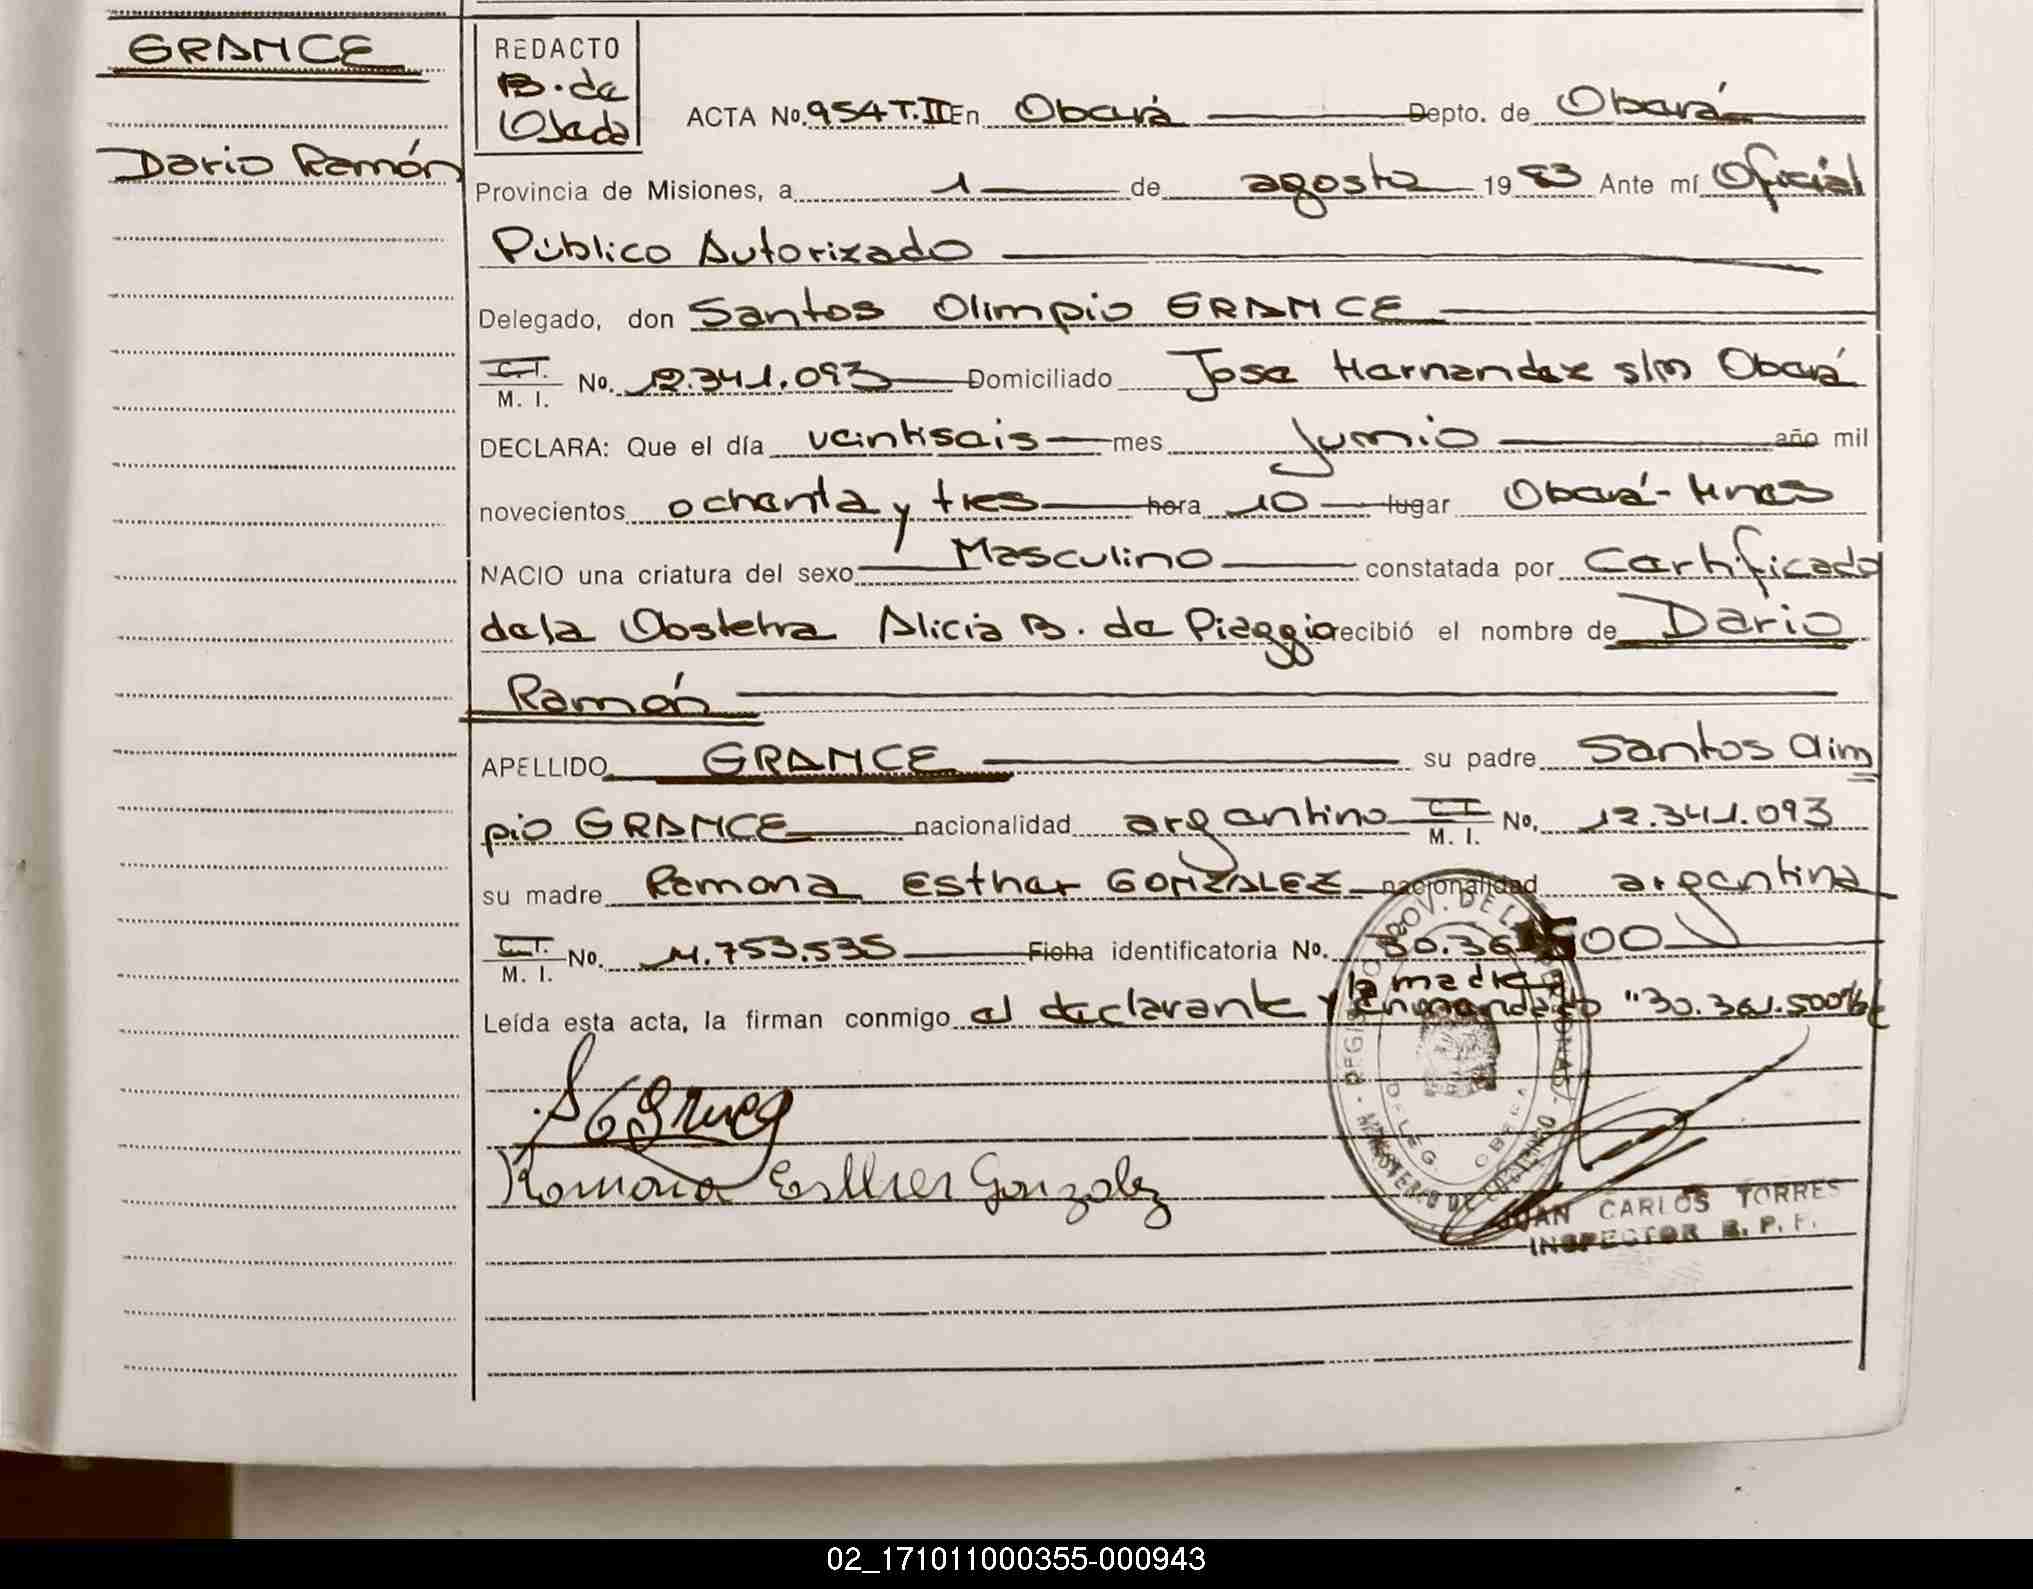 GRANCE
Dario Ramón
REDACTO
B. de
Ojeda
ACTA No. 954 T.II En Oberá Depto. de Oberá
Provincia de Misiones, a 1 de agosto 1983 Ante mí Oficial
Público Autorizado
Delegado, don Santos Olimpio GRANCE
C.I. M. I. No. 12.341.093 Domiciliado Jose Hernandez s/n Oberá
DECLARA: Que el día veintiseis mes Junio año mil
novecientos ochenta y tres hora 10 lugar Oberá-Mnes
NACIO una criatura del sexo Masculino constatada por Certificado
dela Obstetra Alicia B. de Piaggio recibió el nombre de Dario
Ramón
APELLIDO GRANCE su padre Santos Olim
pio GRANCE nacionalidad argentino C.I. M. I. No. 12.341.093
su madre Ramona Esther GONZALEZ nacionalidad argentina
C.I. M. I. No. 11.753.535 Ficha identificatoria No. 30.361.500
la madre
Leída esta acta, la firman conmigo el declarante y Enmendado "30.361.500"
Ramona Esther Gonzalez
JUAN CARLOS TORRES
INSPECTOR R. P. P.
02_171011000355-000943